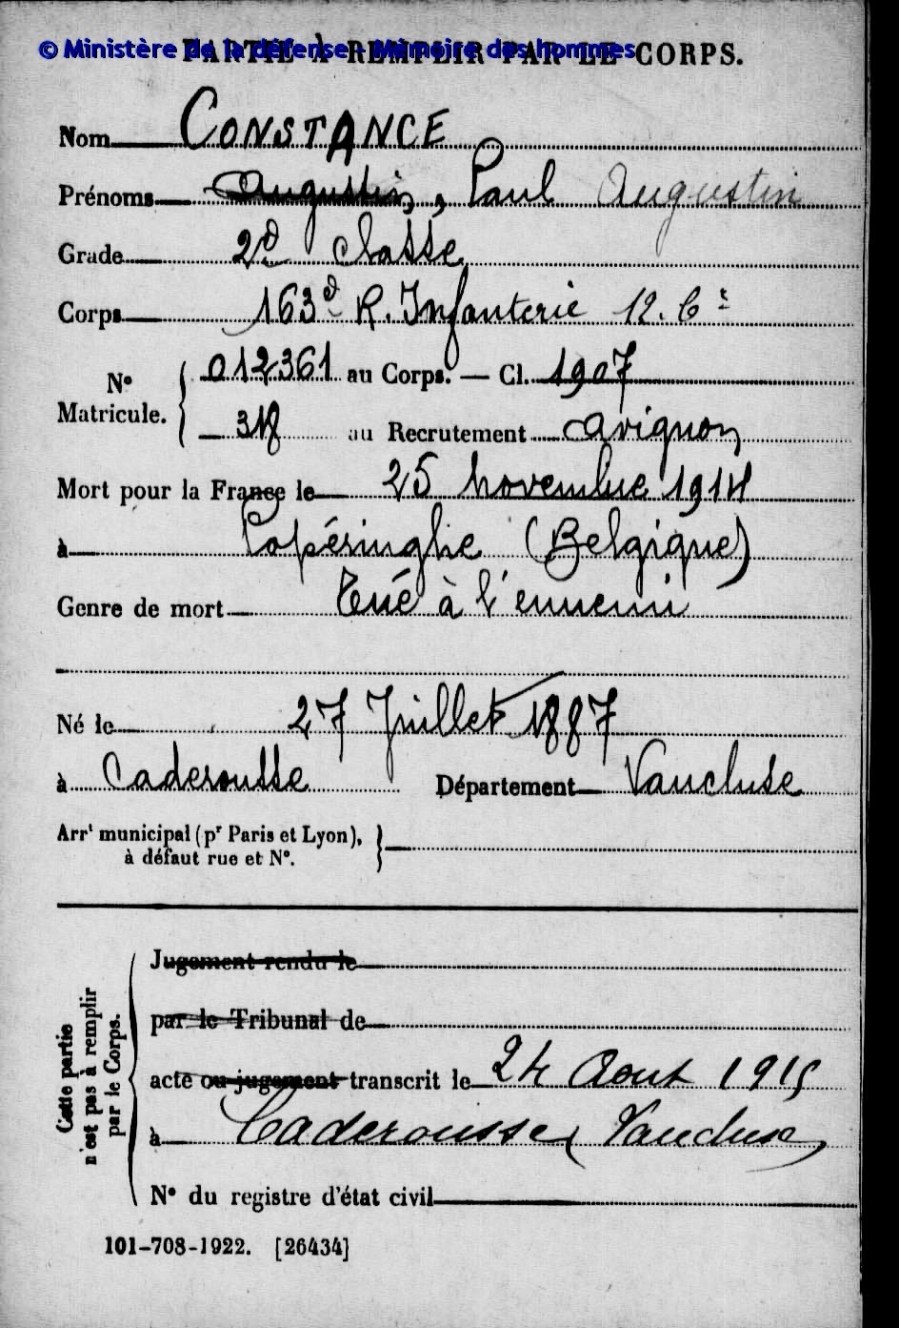 © Ministère de la défense - Mémoire des hommes
PARTIE À REMPLIR PAR LE CORPS.
Nom CONSTANCE
Prénoms Augustin, Paul Augustin
Grade 2d classe
Corps 163e R. Infanterie 12. Cie
No Matricule. 012361 au Corps. — Cl. 1907
318 au Recrutement Avignon
Mort pour la France le 25 Novembre 1914
à Popéringhe (Belgique)
Genre de mort Tué à l'ennemi
Né le 27 Juillet 1887
à Caderousse Département Vaucluse
Arrt municipal (pr Paris et Lyon),
à défaut rue et No.
Cette partie
n'est pas à remplir
par le Corps.
Jugement rendu le
par le Tribunal de
acte ou jugement transcrit le 24 Aout 1915
à Caderousse (Vaucluse
No du registre d'état civil
101-708-1922. [26434]